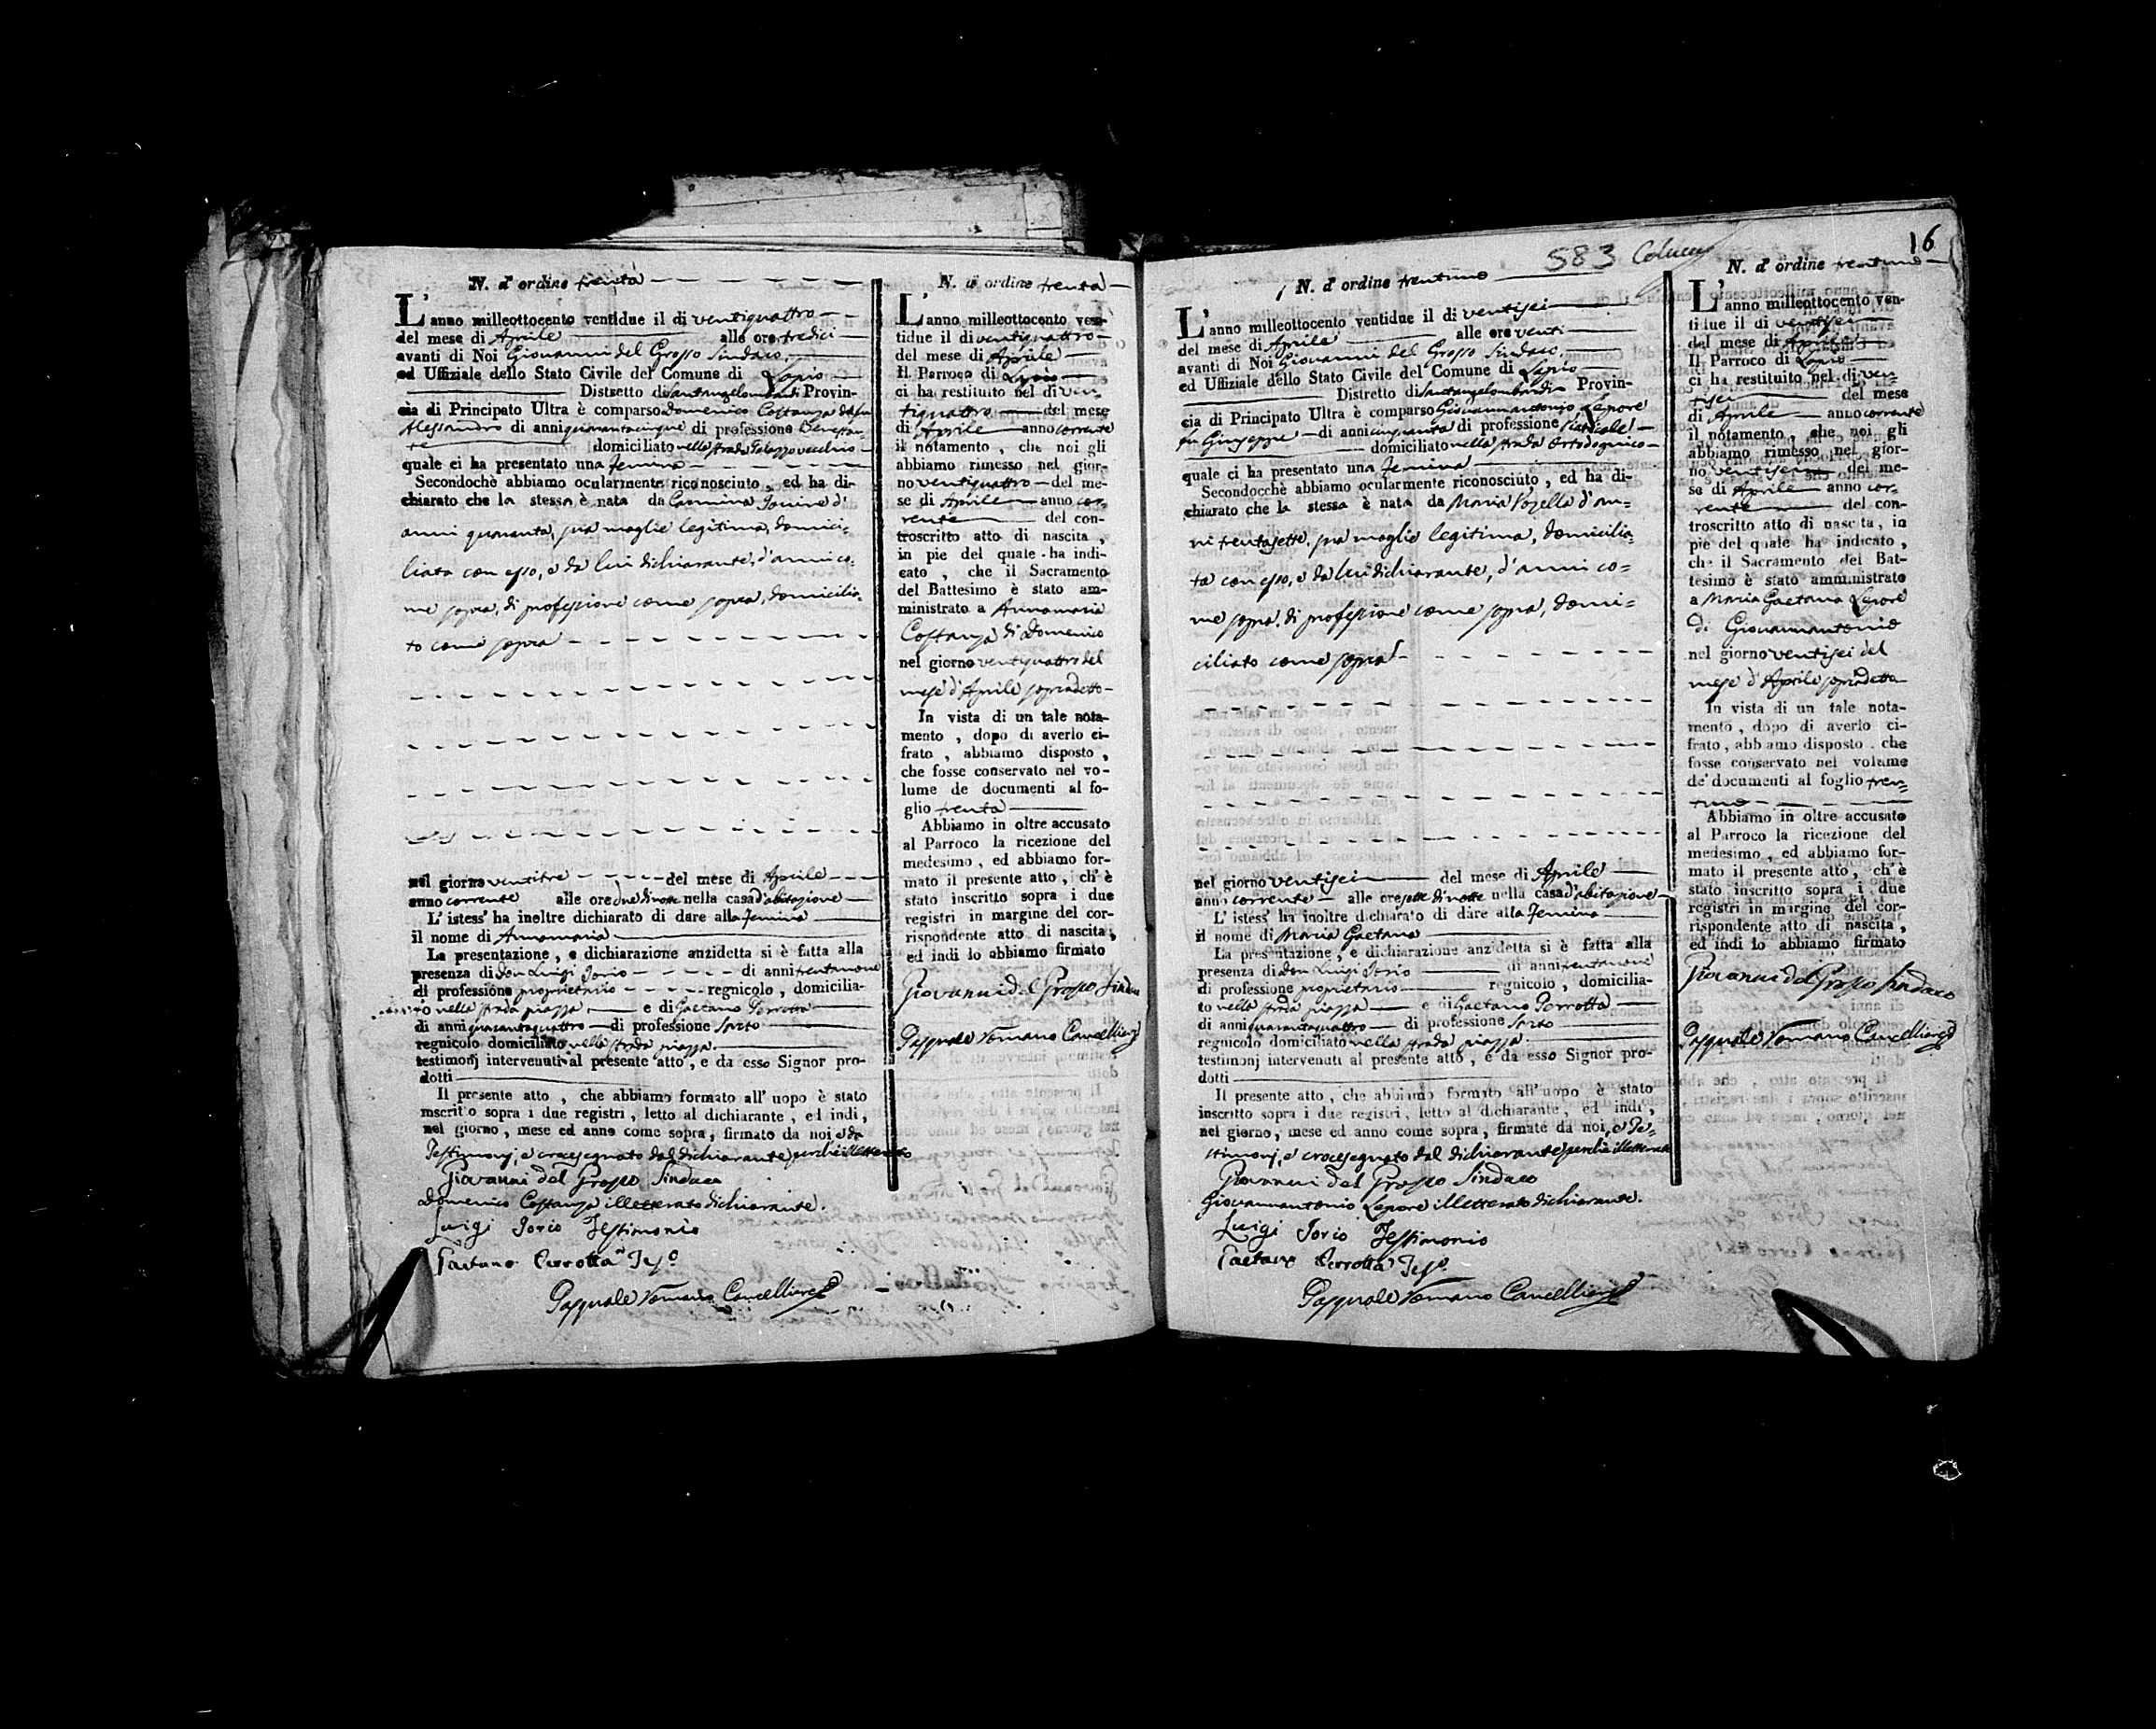 N. d' ordine trenta
L'anno milleottocento ventidue il di ventiquattro
del mese di Aprile alle ore tredici
avanti di Noi Giovanni del Grosso Sindaco,
ed Uffiziale dello Stato Civile del Comune di Lapio
Distretto di Santangelombardi Provin-
cia di Principato Ultra è comparso Domenico Costanza del fu
Alessandro di anni quarantacinque di professione
domiciliato nella strada Palazzo vecchio
quale ci ha presentato una femina
Secondochè abbiamo ocularmente riconosciuto, ed ha di-
chiarato che la stessa è nata da Carmina d'
anni quaranta, sua moglie legitima, domici-
liata con esso, e da lui dichiarante, d'anni co-
me sopra, di professione come sopra, domicilia-
to come sopra
nel giorno ventitre del mese di Aprile
anno corrente alle ore due di notte nella casa d'abitazione
L' istess' ha ineltre dichiarato di dare alla femina
il nome di Annamaria
La presentazione, e dichiarazione anzidetta si è fatta alla
presenza di Don Luigi Iorio di anni trentanove
di professione proprietario regnicolo, domicilia-
to nella strada piazza e di Gaetano Perrotta
di anni quarantaquattro di professione Sarto
regnicolo domiciliato nella strada piazza
testimonj intervenuti al presente atto, e da esso Signor pro-
dotti
Il presente atto, che abbiamo formato all' uopo è stato
inscritto sopra i due registri, letto al dichiarante, ed indi,
nel giorno, mese ed anno come sopra, firmato da noi, e da
Testimonj, e crocesegnato dal dichiarante perchè illetterato
Giovanni del Grosso Sindaco
Domenico Costanza illetterato dichiarante.
Luigi Iorio Testimonio
Gaetano Perrotta Tes.o
Pasquale Romano Cancelliere
N. d' ordine trenta
L'anno milleottocento ven-
tidue il di ventiquattro
del mese di Aprile
Il Parroco di Lapio
ci ha restituito nel di ven-
tiquattro del mese
di Aprile anno corrente
il notamento, che noi gli
abbiamo rimesso nel gior-
no ventiquattro del me-
se di Aprile anno cor-
rente del con-
troscritto atto di nascita,
in pie del quale ha indi-
cato, che il Sacramento
del Battesimo è stato am-
ministrato a Annamaria
Costanza di Domenico
nel giorno ventiquattro del
mese d'Aprile sopradetto
In vista di un tale nota-
mento, dopo di averlo ci-
frato, abbiamo disposto,
che fosse conservato nel vo-
lume de documenti al fo-
glio trenta
Abbiamo in oltre accusato
al Parroco la ricezione del
medesimo, ed abbiamo for-
mato il presente atto, ch' è
stato inscritto sopra i due
registri in margine del cor-
rispondente atto di nascita,
ed indi lo abbiamo firmato
Giovanni del Grosso Sindaco
Pasquale Romano Cancelliere
583
16
N. d' ordine trentuno
L'anno milleottocento ventidue il di ventisei
del mese di Aprile alle ore venti
avanti di Noi Giovanni del Grosso Sindaco,
ed Uffiziale dello Stato Civile del Comune di Lapio
Distretto di Santangelombardi Provin-
cia di Principato Ultra è comparso Giovannantonio Lepore
fu Giuseppe di anni cinquanta di professione
domiciliato nella strada Ortodognico
quale ci ha presentato una femina
Secondocchè abbiamo ocularmente riconosciuto, ed ha di-
chiarato che la stessa è nata da Maria d'an-
ni trentasette, sua moglie legitima, domicilia-
ta con esso, e da lui dichiarante, d'anni co-
me sopra, di professione come sopra, domi-
ciliato come sopra
nel giorno ventisei del mese di Aprile
anno corrente alle ore sette di notte nella casa d'abitazione
L' istess' ha inoltre dichiarato di dare alla femina
il nome di Maria Gaetana
La presentazione, e dichiarazione anzidetta si è fatta alla
presenza di Don Luigi Iorio di anni trentanove
di professione proprietario regnicolo, domicilia-
to nella strada piazza e di Gaetano Perrotta
di anni quarantaquattro di professione Sarto
regnicolo domiciliato nella strada piazza
testimonj intervenuti al presente atto, e da esso Signor pro-
dotti
Il presente atto, che abbiamo formato all' uopo è stato
inscritto sopra i due registri, letto al dichiarante, ed indi,
nel giorno, mese ed anno come sopra, firmate da noi, e Te-
stimonj, e crocesegnato dal dichiarante perchè illetterato
Giovanni del Grosso Sindaco
Giovannantonio Lepore illetterato dichiarante.
Luigi Iorio Testimonio
Gaetano Perrotta Tes.o
Pasquale Romano Cancelliere
N. d' ordine trentuno
L'anno milleottocento ven-
tidue il di ventisei
del mese di Aprile
Il Parroco di Lapio
ci ha restituito nel di ven-
tisei del mese
di Aprile anno corrente
il notamento, che noi gli
abbiamo rimesso nel gior-
no ventisei del me-
se di Aprile anno cor-
rente del con-
troscritto atto di nascita, in
pie del quale ha indicato,
che il Sacramento del Bat-
tesimo è stato amministrato
a Maria Gaetana Lepore
di Giovannantonio
nel giorno ventisei del
mese d'Aprile sopradetto
In vista di un tale nota-
mento, dopo di averlo ci-
frato, abbiamo disposto, che
fosse conservato nel volume
de' documenti al foglio tren-
tuno
Abbiamo in oltre accusato
al Parroco la ricezione del
medesimo, ed abbiamo for-
mato il presente atto, ch' è
stato inscritto sopra i due
registri in margine del cor-
rispondente atto di nascita,
ed indi lo abbiamo firmato
Giovanni del Grosso Sindaco
Pasquale Romano Cancelliere